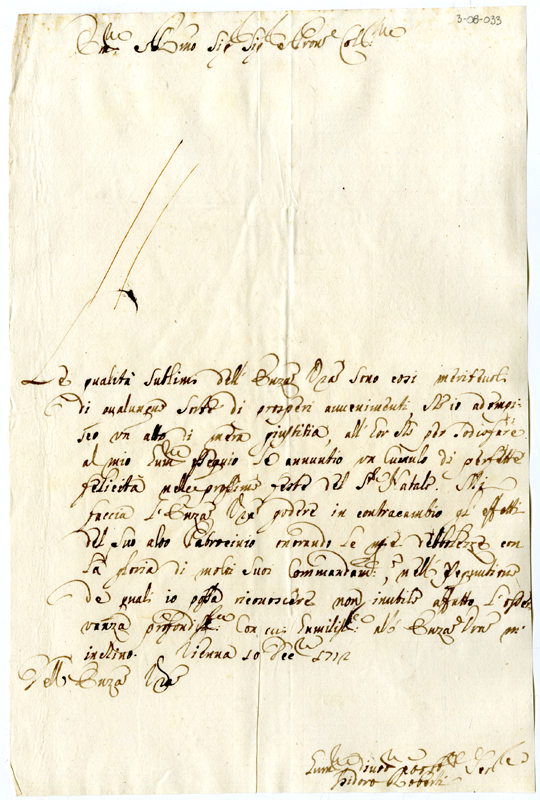 3-08-033
Em.mo Sig.r Sig.r Pron.e Coll.mo
Le qualità sublimi dell' Emza Vra sono così meritevoli
di qualunque sorte di prosperi avvenimenti, ch' io adempi-
sco un atto di mera giustitia, all' hor che per sodisfare
al mio ossequio le annuntio un Cumulo di perfette
felicità nelle prossime feste del S.to Natale. Mi
faccia l' Emza Vra godere in contracambio gl' effetti
del suo alto Patrocinio onorando le mie debolezze con
la gloria di molti suoi Commandam.ti, nell'
de quali io possa riconoscere non inutile affatto l' osser-
vanza profondiss.ma con cui humiliss.e all' Emza Vra m'
inchino. Vienna 10 Dec.re 1712
Dell' Emza Vra
Hum.mo Divot.mo
Isidoro